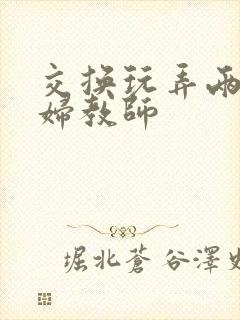 交换玩弄两
婦教師
堀北蒼 谷澤